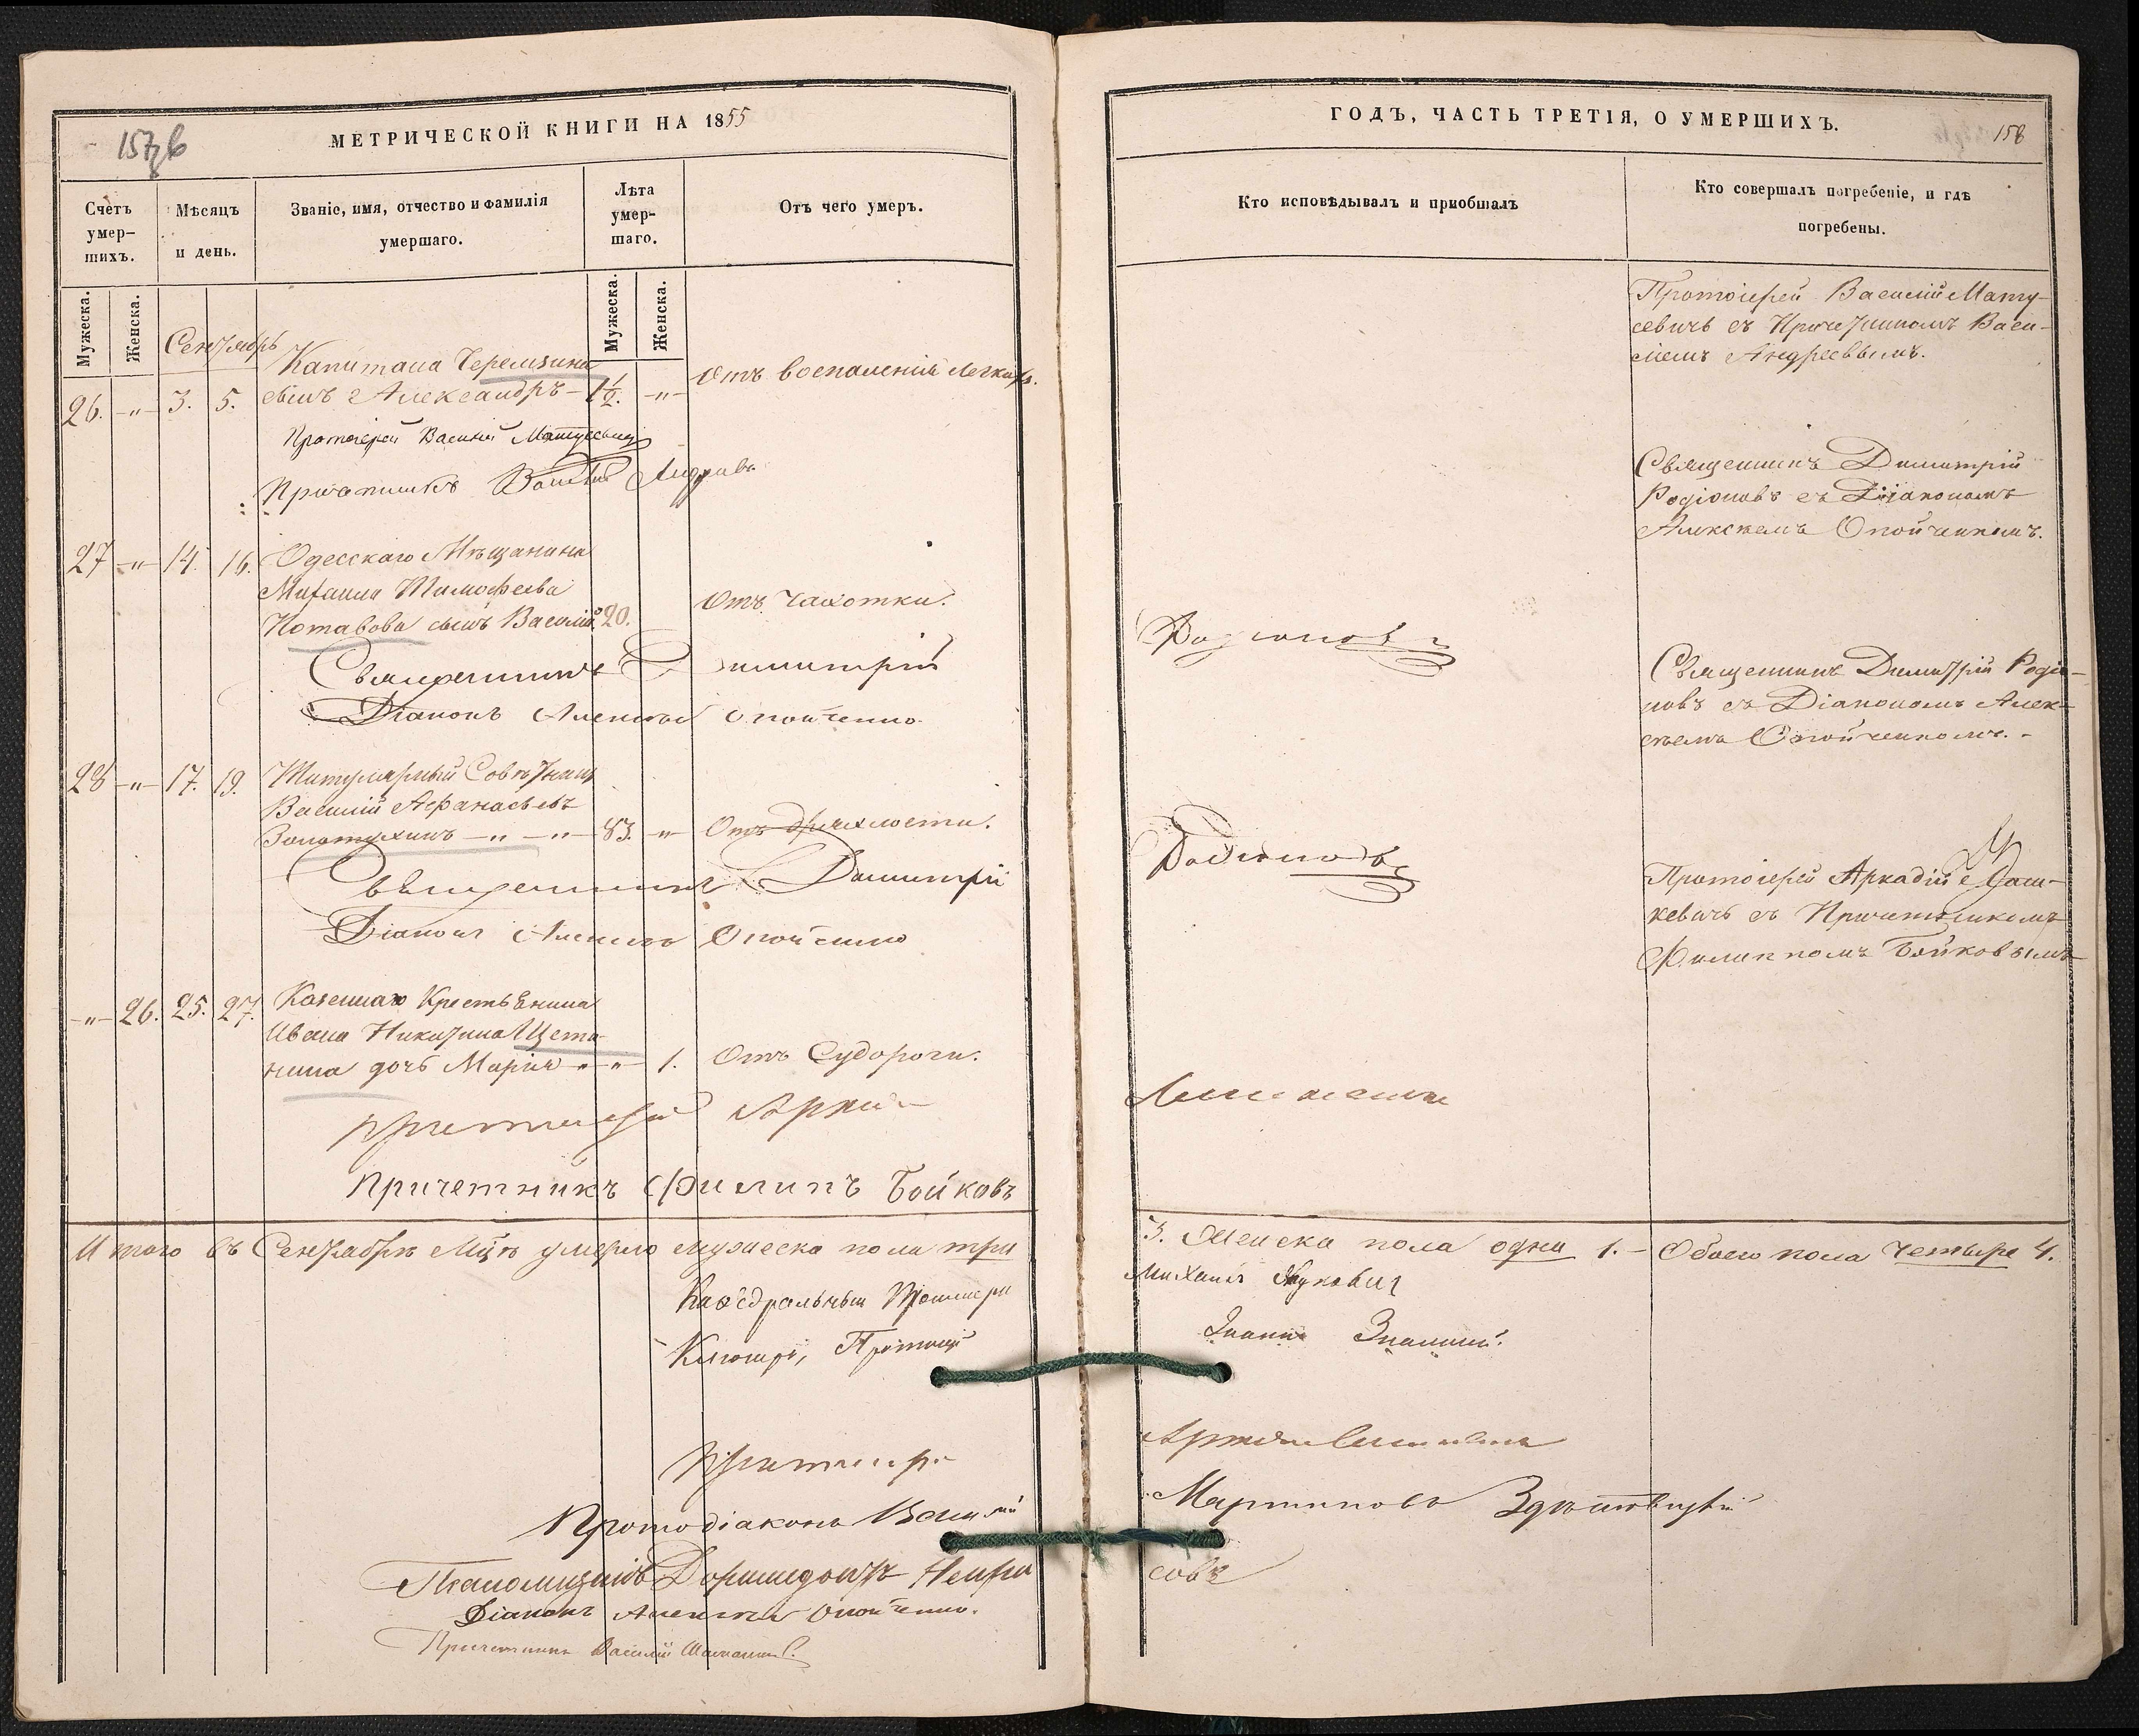 157 об
МЕТРИЧЕСКОЙ КНИГИ НА 1855
Счетъ умер-шихъ.
Мѣсяцъ и день.
Званіе, имя, отчество и фамилія умершаго.
Лѣта умер-шаго.
Отъ чего умеръ.
Мужеска.
Женска.
Мужеска.
Женска.
Сентябрь
Капитана Черемзина
26. -"- 3. 5. сынъ Александръ - 1 1/2. -"- Отъ воспаленія легкихъ.
Протоіерей Василій Матусевичъ
Причетникъ Василій Андреевъ
27 -"- 14. 16. Одесскаго Мѣщанина
Михаила Тимофеева
сынъ Василій. 20. Отъ Чахотки.
Священникъ Димитрій
Діаконъ Алексѣй Опойченко
28 -"- 17. 19. Титулярный Совѣтникъ
Василій Афанасьевъ
Золотухинъ -"- -"- 83. -"- Отъ дряхлости.
Священникъ Димитрій
Діаконъ Алексѣй Опойченко
-"- 26. 25. 27. Казеннаго Крестьянина
Ивана Никитина Щети-
нина дочь Марія -"- 1. Отъ Судороги.
Протоіерей Аркадій
Причетникъ Филипъ Бойковъ
Итого въ Сентябрѣ Мцѣ умерло мужеска пола три
Каѳедральный Протоіерей
Ключарь, Протоіерей
Протоіерей
Протодіаконъ Василій
Діаконъ Алексѣй Опойченко.
Причетникъ Василій
ГОДЪ, ЧАСТЬ ТРЕТІЯ, О УМЕРШИХЪ.
158
Кто исповѣдывалъ и приобщалъ
Кто совершалъ погребеніе, и гдѣ погребены.
Протоіерей Василій Мату-
севичъ съ Причетникомъ Васи-
ліемъ Андреевымъ.
Священникъ Димитрій
Родіоновъ съ Діакономъ
Алексѣемъ Опойченкомъ.
Родіоновъ
Священникъ Димитрій Родіо-
новъ съ Діакономъ Алек-
сѣемъ Опойченкомъ. -
Родіоновъ
Протоіерей Аркадій
кевичъ съ Причетникомъ
Филиппомъ Бойковымъ
3. Женска пола одна 1. - Обоего пола Четыре 4.
Михаилъ
Іоаннъ Знаменскій.
Мартиновъ
совъ